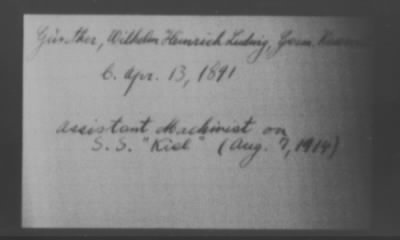 Günther, Wilhelm Heinrich Ludwig, Germ.
b. Apr. 13, 1891
Assistant Machinist on
S.S. "Kiel" (Aug. 7, 1914)